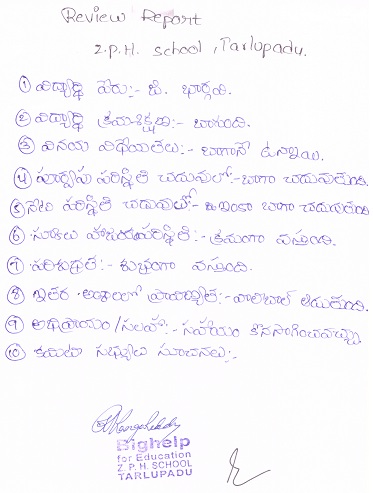 Review Report
Z.P.H. School, Tarlupadu.
① విద్యార్థి పేరు:- జి. భార్గవి.
② విద్యార్థి క్రమశిక్షణ:- బాగుంది.
③ వినయ విధేయతలు:- బాగానే ఉన్నాయి.
④ పూర్వపు పరిస్థితి చదువులో:- బాగా చదువుతుంది.
⑤ నేటి పరిస్థితి చదువులో:- ఇంకా బాగా చదువుతుంది
⑥ స్కూలు హాజరుపరిస్థితి:- క్రమంగా వస్తుంది.
⑦ పరిశుభ్రత:- శుభ్రంగా వస్తుంది.
⑧ ఇతర అంశాలలో ప్రావీణ్యత:- వాలీబాల్ ఆడుతుంది.
⑨ అభిప్రాయం/సలహా:- సహాయం కొనసాగించవచ్చు.
⑩ కమిటీ సభ్యులు సూచనలు:-
Bighelp
for Education
Z. P. H. SCHOOL
TARLUPADU